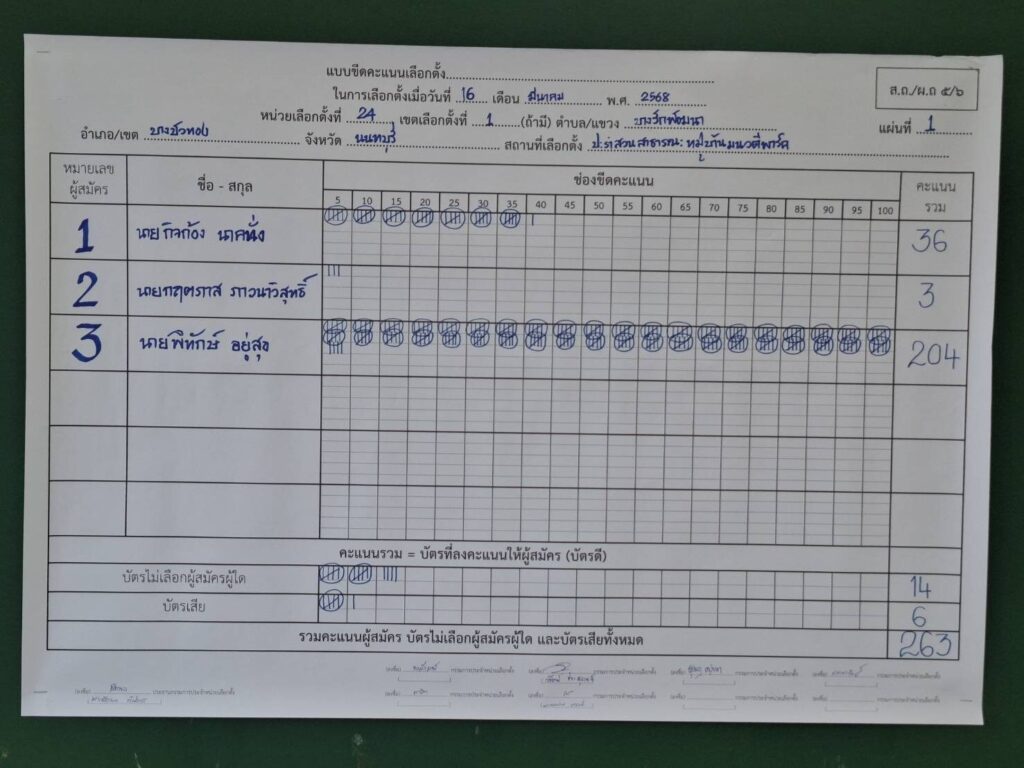 แบบขีดคะแนนเลือกตั้ง
ส.ถ./ผ.ถ ๕/๖
ในการเลือกตั้งเมื่อวันที่ 16 เดือน มีนาคม พ.ศ. 2568
หน่วยเลือกตั้งที่ 24 เขตเลือกตั้งที่ 1 (ถ้ามี) ตำบล/แขวง บางรักพัฒนา
แผ่นที่ 1
อำเภอ/เขต บางบัวทอง จังหวัด นนทบุรี สถานที่เลือกตั้ง สวนสาธารณะหมู่บ้าน
หมายเลขผู้สมัคร ชื่อ - สกุล ช่องขีดคะแนน คะแนนรวม
5 10 15 20 25 30 35 40 45 50 55 60 65 70 75 80 85 90 95 100
1 นายกิจก้อง นาคทั่ง 36
2 นายกฤตภาส ภาวนาวิสุทธิ์ 3
3 นายพิทักษ์ อยู่สุข 204
คะแนนรวม = บัตรที่ลงคะแนนให้ผู้สมัคร (บัตรดี)
บัตรไม่เลือกผู้สมัครผู้ใด 14
บัตรเสีย 6
รวมคะแนนผู้สมัคร บัตรไม่เลือกผู้สมัครผู้ใด และบัตรเสียทั้งหมด 263
(ลงชื่อ) กรรมการประจำหน่วยเลือกตั้ง (ลงชื่อ) กรรมการประจำหน่วยเลือกตั้ง (ลงชื่อ) กรรมการประจำหน่วยเลือกตั้ง (ลงชื่อ) กรรมการประจำหน่วยเลือกตั้ง
(ลงชื่อ) ประธานกรรมการประจำหน่วยเลือกตั้ง (ลงชื่อ) กรรมการประจำหน่วยเลือกตั้ง (ลงชื่อ) กรรมการประจำหน่วยเลือกตั้ง (ลงชื่อ) กรรมการประจำหน่วยเลือกตั้ง (ลงชื่อ) กรรมการประจำหน่วยเลือกตั้ง